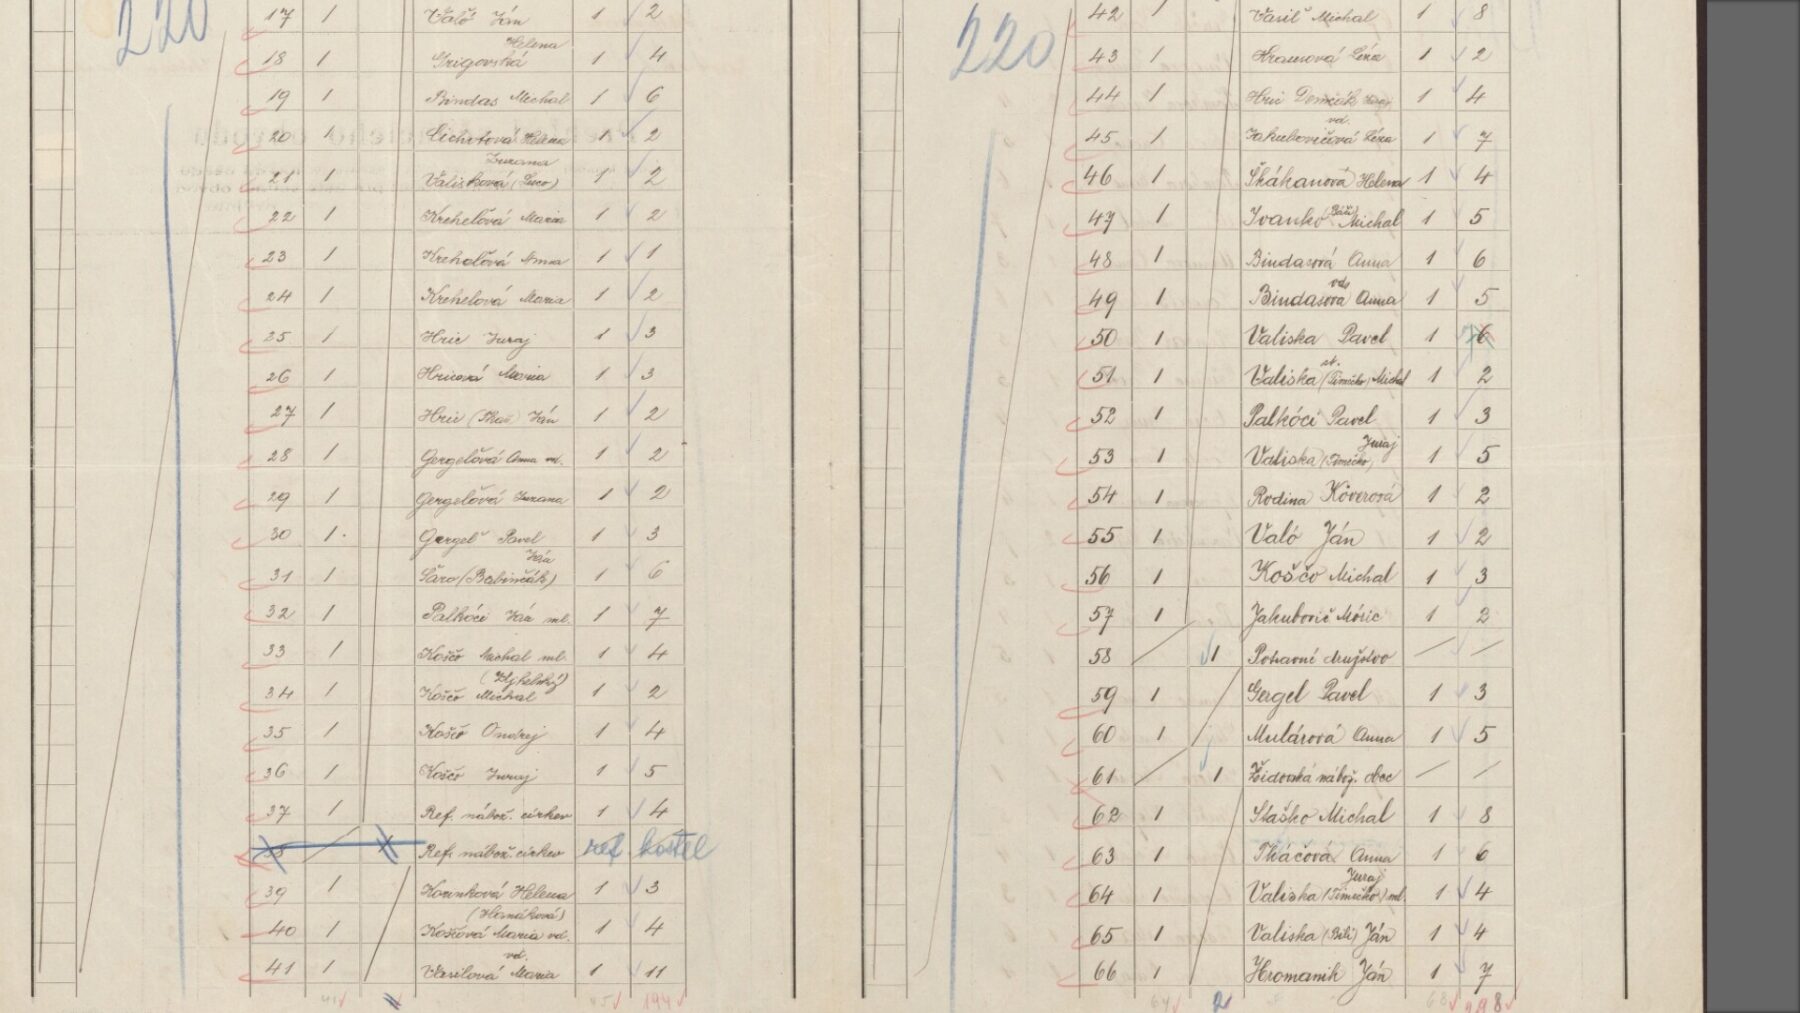 220
17 1 Való Ján 1 2
Helena
18 1 Grigovská 1 4
19 1 Bindas Michal 1 6
20 1 Lichotová Helena 1 2
Zuzana
21 1 Valisková 1 2
22 1 Krehelová Maria 1 2
23 1 Krehelová Anna 1 1
24 1 Krehelová Maria 1 2
25 1 Hric Juraj 1 3
26 1 Hricová Maria 1 3
27 1 Hric Ján 1 2
28 1 Gergelová Anna vd. 1 2
29 1 Gergelová Zuzana 1 2
30 1. Gergel Pavel 1 3
Ján
31 1 Šaro (Babinčák) 1 6
32 1 Palkóci Ján ml. 1 7
33 1 Koščo Michal ml. 1 4
34 1 Koščo Michal 1 2
35 1 Koščo Ondrej 1 4
36 1 Koščo Juraj 1 5
37 1 Ref. nábož. cirkev 1 4
38 Ref. nábož. cirkev ref. kostel
39 1 Helena 1 3
40 1 Koščová Maria vd. 1 4
vd.
41 1 Vasilová Maria 1 11
220
42 1 Vasil Michal 1 8
43 1 2
44 1 Hric Demčák Juraj 1 4
vd.
45 1 Jakubovičová Léza 1 7
46 1 Škákanová Helena 1 4
47 1 Ivanko Michal 1 5
48 1 Bindasová Anna 1 6
vd.
49 1 Bindasová Anna 1 5
50 1 Valiska Pavel 1 6
st.
51 1 Valiska (Timečko) Michal 1 2
52 1 Palkóci Pavel 1 3
Juraj
53 1 Valiska (Timečko) 1 5
54 1 Rodina Kóverová 1 2
55 1 Való Ján 1 2
56 1 Koščo Michal 1 3
57 1 Jakubovič Móric 1 2
58 1 Potravné družstvo
59 1 Gergel Pavel 1 3
60 1 Mulárová Anna 1 5
61 1 Židovská nábož. obec
62 1 Staško Michal 1 8
63 1 Tkáčová Anna 1 6
Juraj
64 1 Valiska (Timečko) ml. 1 4
65 1 Valiska (Bili) Ján 1 4
66 1 Hromanik Ján 1 7
2